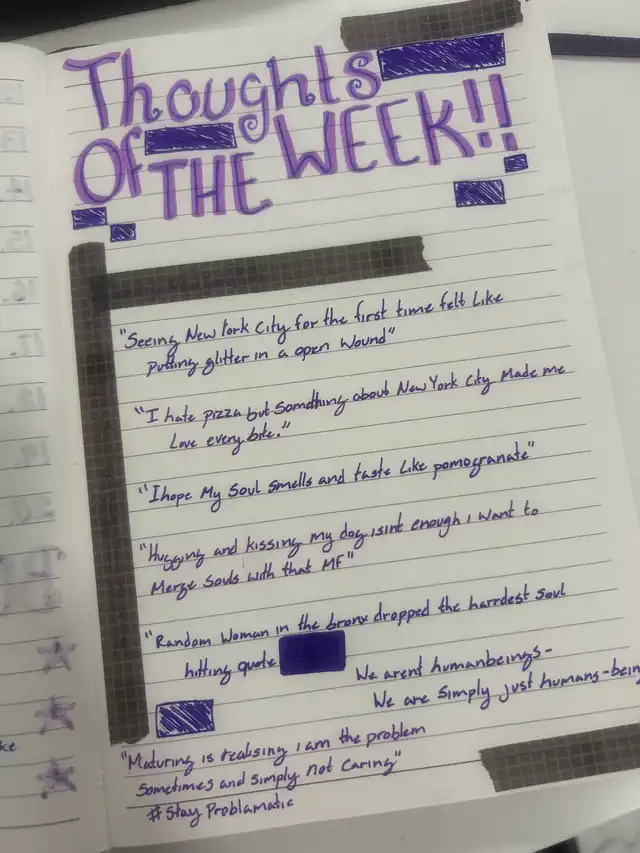 Thoughts
Of THE WEEK!!
"Seeing New York City for the first time felt Like
putting glitter in a open wound"
"I hate pizza but something about New York City Made me
Love every bite."
"I hope My Soul Smells and taste Like pomogranate"
"Hugging and kissing my dog isint enough i want to
Merge souls with that MF"
"Random Woman in the bronx dropped the harrdest Soul
hitting quote
We arent humanbeings-
We are simply just humans-bein
"Maturing is realising i am the problem
sometimes and simply not caring"
#Stay Problamatic
ke